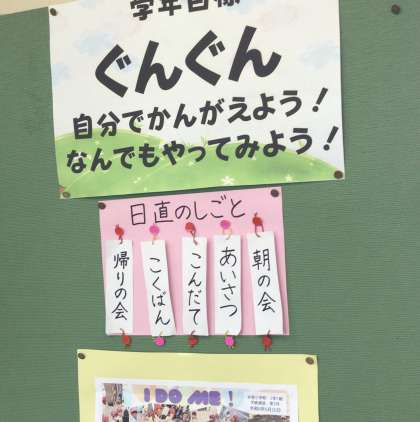 学年目標
ぐんぐん
自分でかんがえよう！
なんでもやってみよう！
日直のしごと
朝の会
あいさつ
こんだて
こくばん
帰りの会
I DO ME!